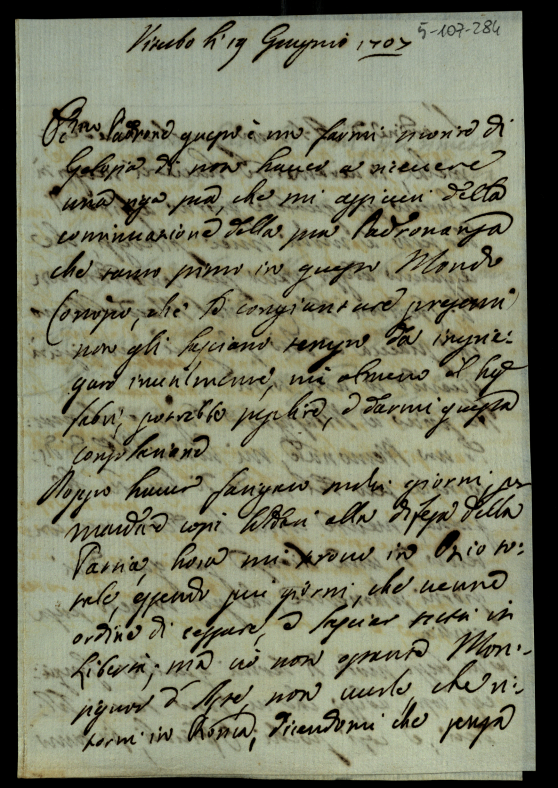 5-107-284
Viterbo li 19 Giugno 1707
Padrone questo è un farmi morire di
Gelosia di non haver a ricevere
una riga sua, che mi assicuri della
continuazione della sua Padronanza
che tanto stimo in questo Mondo
Conosco, che le congiunture presenti
non gli lasciano tempo da impie-
garsi inutilmente, mà almeno il
potrebbe supplire, e darmi questa
consolazione
Doppo haver faticato molti giorni per
mandare copie soldati alla difesa della
Patria, hora mi trovo in Ozio to-
tale, essendo più giorni, che venne
ordine di cessare, e lasciar tutti in
Libertà; mà ciò non ostante Mon-
signor non vuole, che ri-
torni in Roma, dicendomi che senza